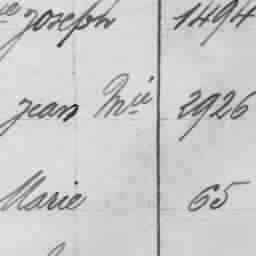 Joseph 1494
Jean Mie 2926
Marie 65